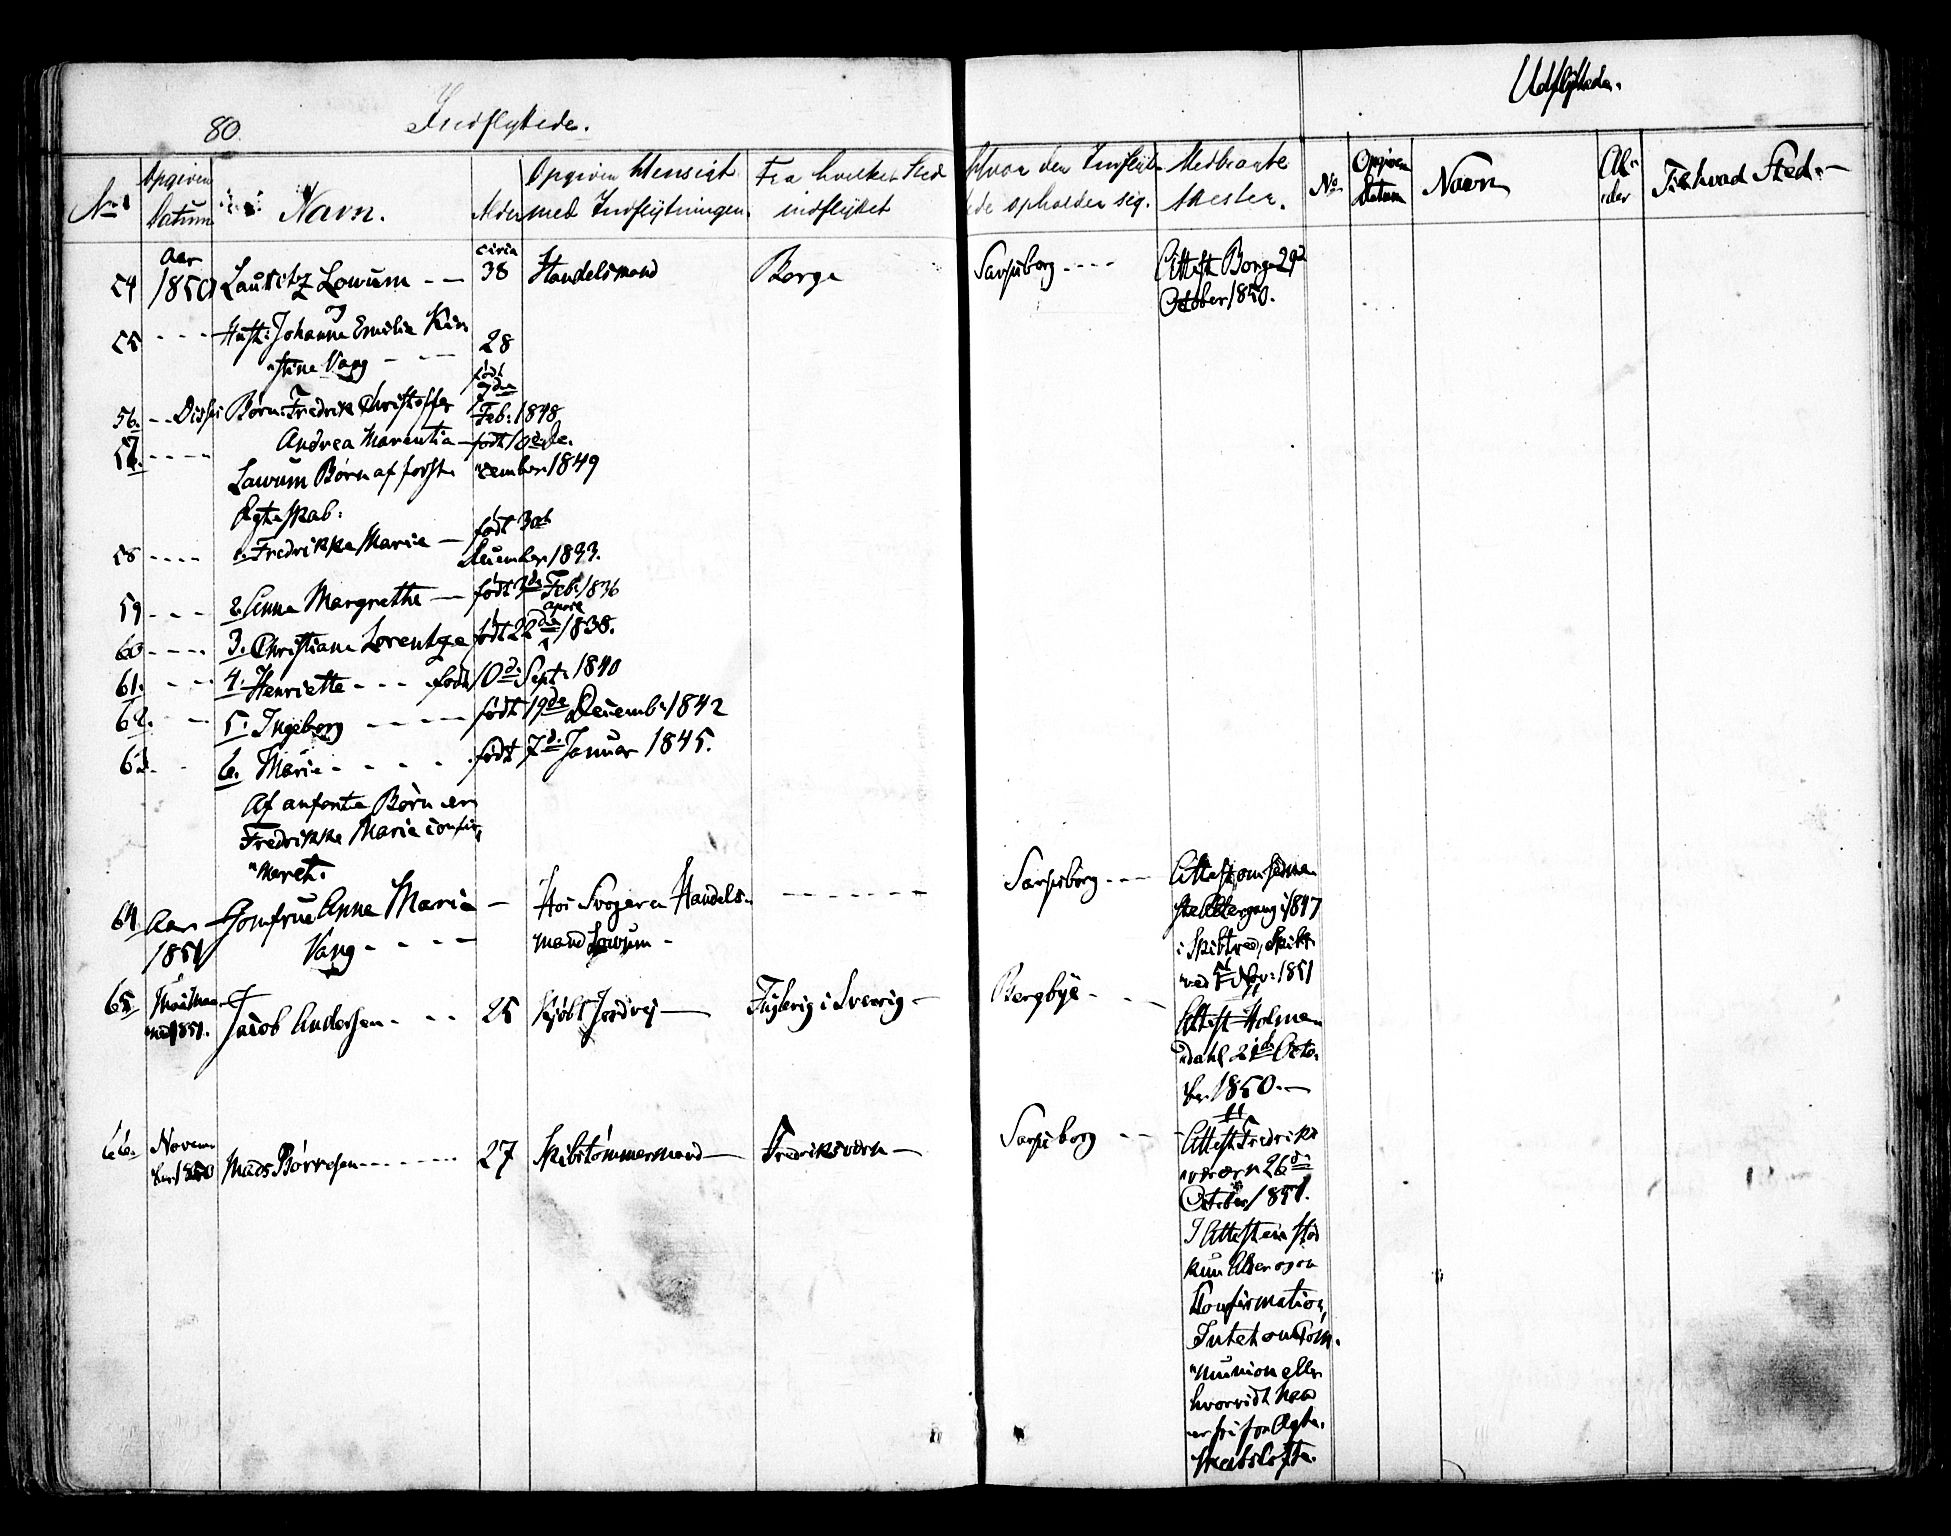 80.
Indflyttede.
Udflyttede.
No
Opgiven Datum
Navn.
Alder
Opgiven Hensigt med Indflytningen.
Fra hvilket Sted indflyttet
Hvor den Indflyttede opholder sig.
Medbragte Attester.
No
Opgiven Datum
Navn
Al-
der
Til hvad Sted.
54 Aar 1850 Lauritz Lowum - - circa 38 Handelsmand Borge Sarpsborg - - - - Attest Borge 29d
October 1850.
55 - - - Hustr: Johanne Emilie Kir
"stine Vang - - - 28
56. - - Disses Børn: Fredrik Christoffer født 7de
Feb: 1848
57. - - - - Andrea Marentia - født 10de De-
Lowum Børn af første "cember 1849
Egteskab:
58 - - - - 1. Fredrikke Marie - født 30t
December 1833.
59 - - - 2. Anna Margrethe - født 7de Feb: 1836
60 - - - - 3. Christiane Lorentze født 22de april 1838.
61. - - - 4. Henriette - - - født 10d. Sept: 1840
62. - - 5. Ingeborg - - - - født 19de Decemb: 1842
63. - - 6. Marie - - - - født 7d. Januar 1845.
Af anførte Børn er
Fredrikke Marie confir-
"meret.
64 Aar 1851 Jomfrue Anne Maria - Hos Svogeren Handels- - - - - - - Sarpsborg - - - Attest om
Vang - - - - mand Lowum -
1847
i Skibtved, Skibt-
"ved 1851
65 1851. Jacob Andersen - - - 25 Kjøbt Jordvej - i Sverrig - Bergbye - - - Attest Holmen
"dahl 21de Octo-
ber 1850. -
66. Novem-
ber 1850 Mads Børresen - - - - - - - 27 Skibstømmermand - Fredriksværn - Sarpsborg - - - Attest Fredriks
"værn 26d.
October 1851.
I Attesten stod
kun Alder og
Konfirmation,
Intet om Com-
"munion eller
hvorvidt han
er fri for Egte-
skabsløfte.